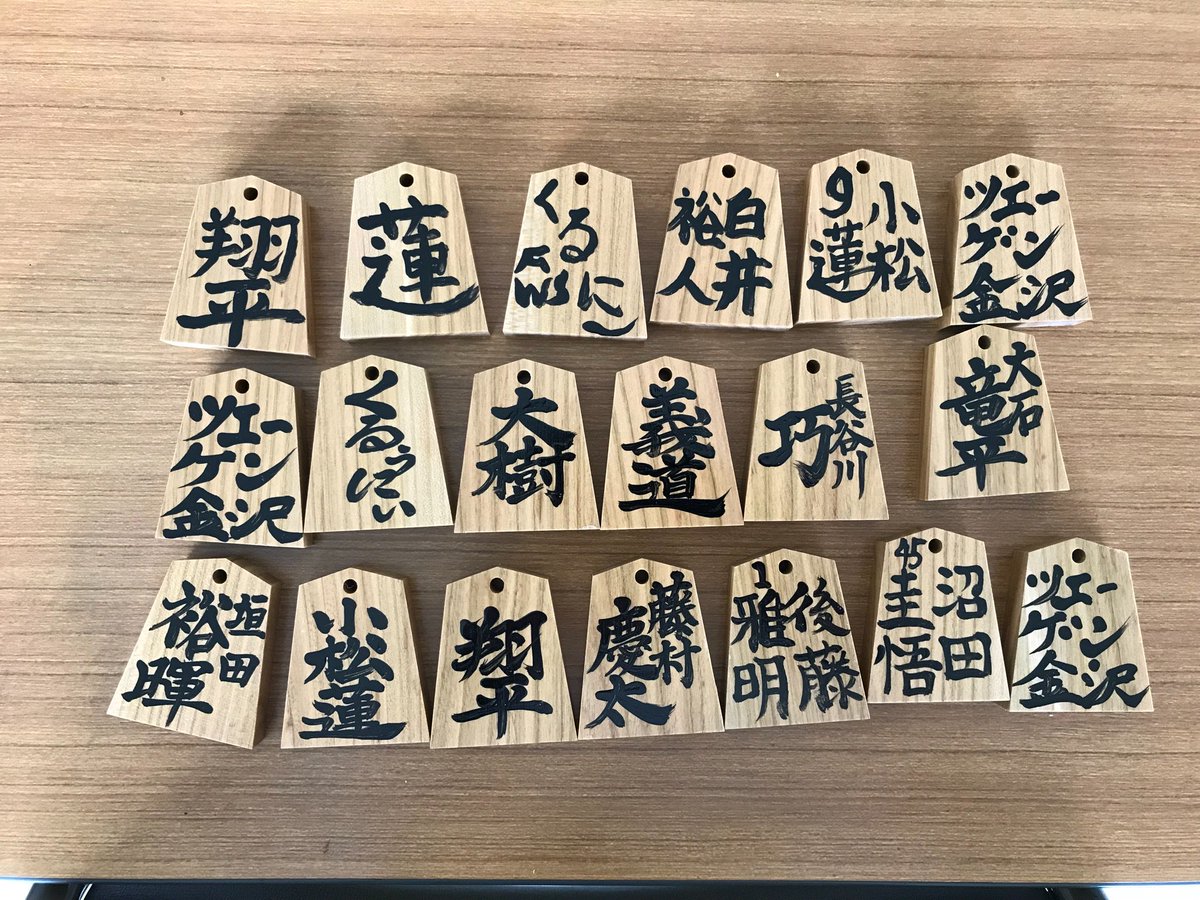 翔平
蓮
くるに
白井
裕人
小松
9
蓮
ツエー
ゲン
金沢
ツエー
ゲン
金沢
くるぅにぃ
大樹
義道
長谷川
巧
大石
竜平
垣田
裕暉
小松蓮
翔平
藤村
慶太
1
後藤
雅明
45
沼田
圭悟
ツエー
ゲン
金沢